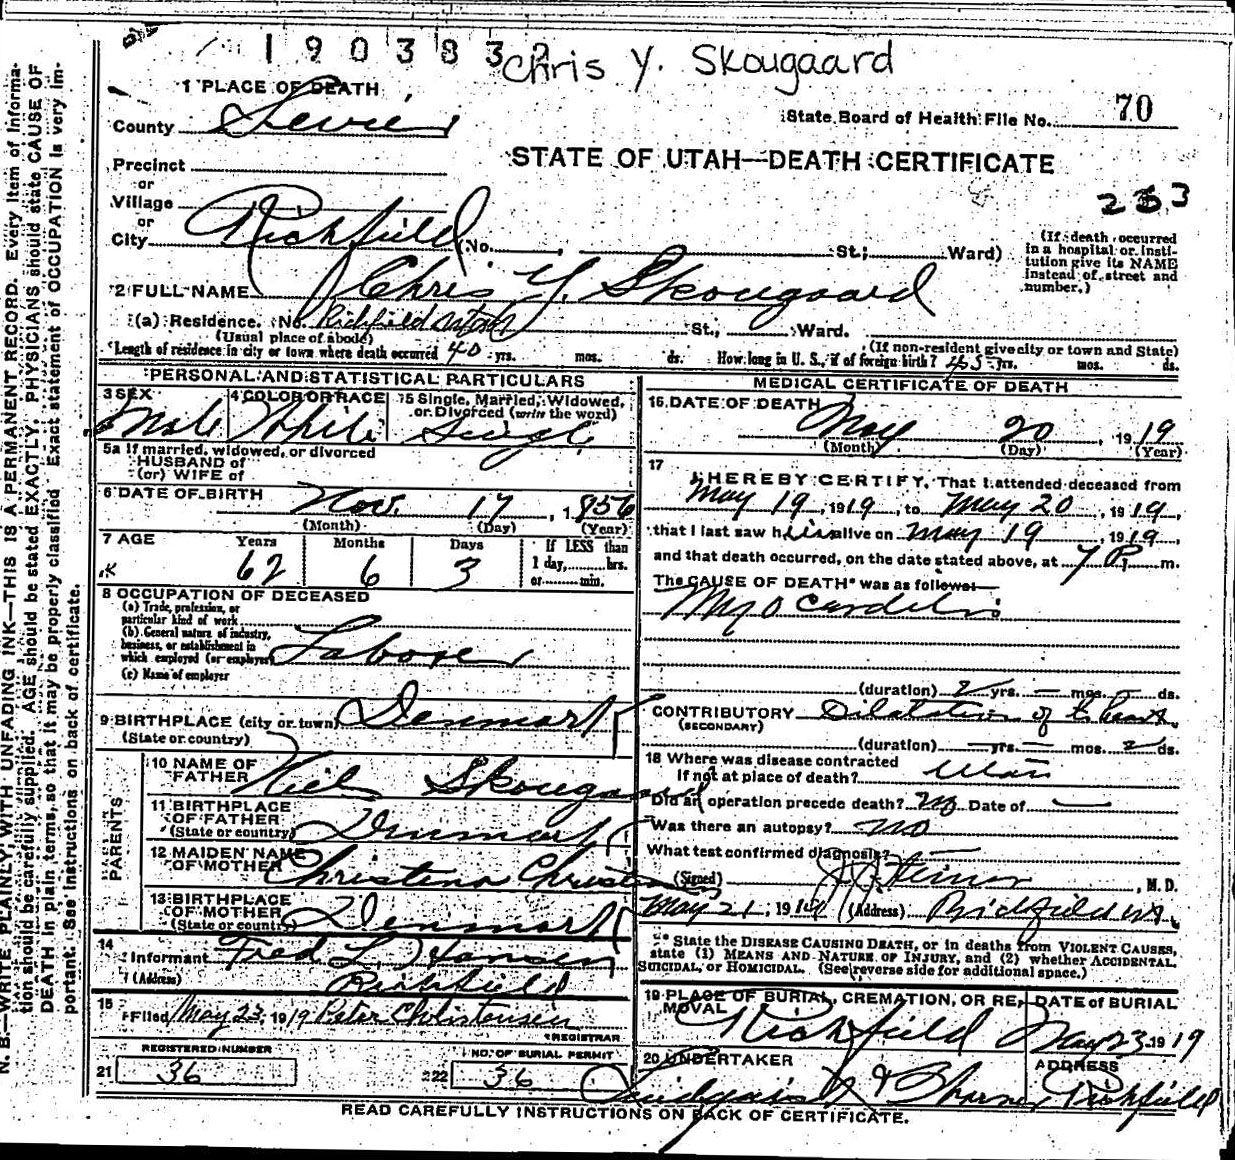 1903832
Chris Y. Skougaard
1 PLACE OF DEATH
County Sevier
State Board of Health File No. 70
STATE OF UTAH—DEATH CERTIFICATE
233
Precinct
or
Village
or
City Richfield (No. , St; Ward)
(If death occurred in a hospital or institution give its NAME instead of street and number.)
2 FULL NAME Chris Y. Skougaard
(a) Residence. No. Richfield Utah St., Ward.
(Usual place of abode) (If non-resident give city or town and State)
Length of residence in city or town where death occurred 40 yrs. mos. ds. How long in U. S., if of foreign birth? 45 yrs. mos. ds.
PERSONAL AND STATISTICAL PARTICULARS
3 SEX Male
4 COLOR OR RACE White
5 Single, Married, Widowed, or Divorced (write the word) Single
5a If married, widowed, or divorced
HUSBAND of
(or) WIFE of
6 DATE OF BIRTH Nov. 17, 1856
(Month) (Day) (Year)
7 AGE Years Months Days If LESS than
62 6 3 1 day, hrs.
or min.
8 OCCUPATION OF DECEASED
(a) Trade, profession, or
particular kind of work
(b) General nature of industry,
business, or establishment in
which employed (or employer) Laborer
(c) Name of employer
9 BIRTHPLACE (city or town) Denmark
(State or country)
PARENTS
10 NAME OF FATHER Niels Skougaard
11 BIRTHPLACE OF FATHER (State or country) Denmark
12 MAIDEN NAME OF MOTHER Christena
13 BIRTHPLACE OF MOTHER (State or country) Denmark
14 Informant Fred L. Hansen
(Address) Richfield
15 Filed May 23, 1919 Peter Christensen
REGISTRAR
REGISTERED NUMBER
21 36
NO. OF BURIAL PERMIT
22 36
MEDICAL CERTIFICATE OF DEATH
16 DATE OF DEATH May 20, 1919
(Month) (Day) (Year)
17 I HEREBY CERTIFY, That I attended deceased from
May 19, 1919, to May 20, 1919,
that I last saw him alive on May 19, 1919,
and that death occurred, on the date stated above, at 7 P. m.
The CAUSE OF DEATH* was as follows:
Myocarditis
(duration) 2 yrs. — mos. — ds.
CONTRIBUTORY Dilatation of heart
(SECONDARY)
(duration) — yrs. — mos. 2 ds.
18 Where was disease contracted
If not at place of death? Utah
Did an operation precede death? No Date of —
Was there an autopsy? No
What test confirmed diagnosis?
(Signed) , M. D.
May 21, 1919 (Address) Richfield Ut.
* State the DISEASE CAUSING DEATH, or in deaths from VIOLENT CAUSES,
state (1) MEANS AND NATURE OF INJURY, and (2) whether ACCIDENTAL,
SUICIDAL, or HOMICIDAL. (See reverse side for additional space.)
19 PLACE OF BURIAL, CREMATION, OR REMOVAL Richfield
DATE of BURIAL May 23 1919
20 UNDERTAKER
ADDRESS Richfield
READ CAREFULLY INSTRUCTIONS ON BACK OF CERTIFICATE.
N. B.—WRITE PLAINLY, WITH UNFADING INK—THIS IS A PERMANENT RECORD. Every item of information
should be carefully supplied. AGE should be stated EXACTLY. PHYSICIANS should state CAUSE OF
DEATH in plain terms, so that it may be properly classified. Exact statement of OCCUPATION is very important.
See instructions on back of certificate.